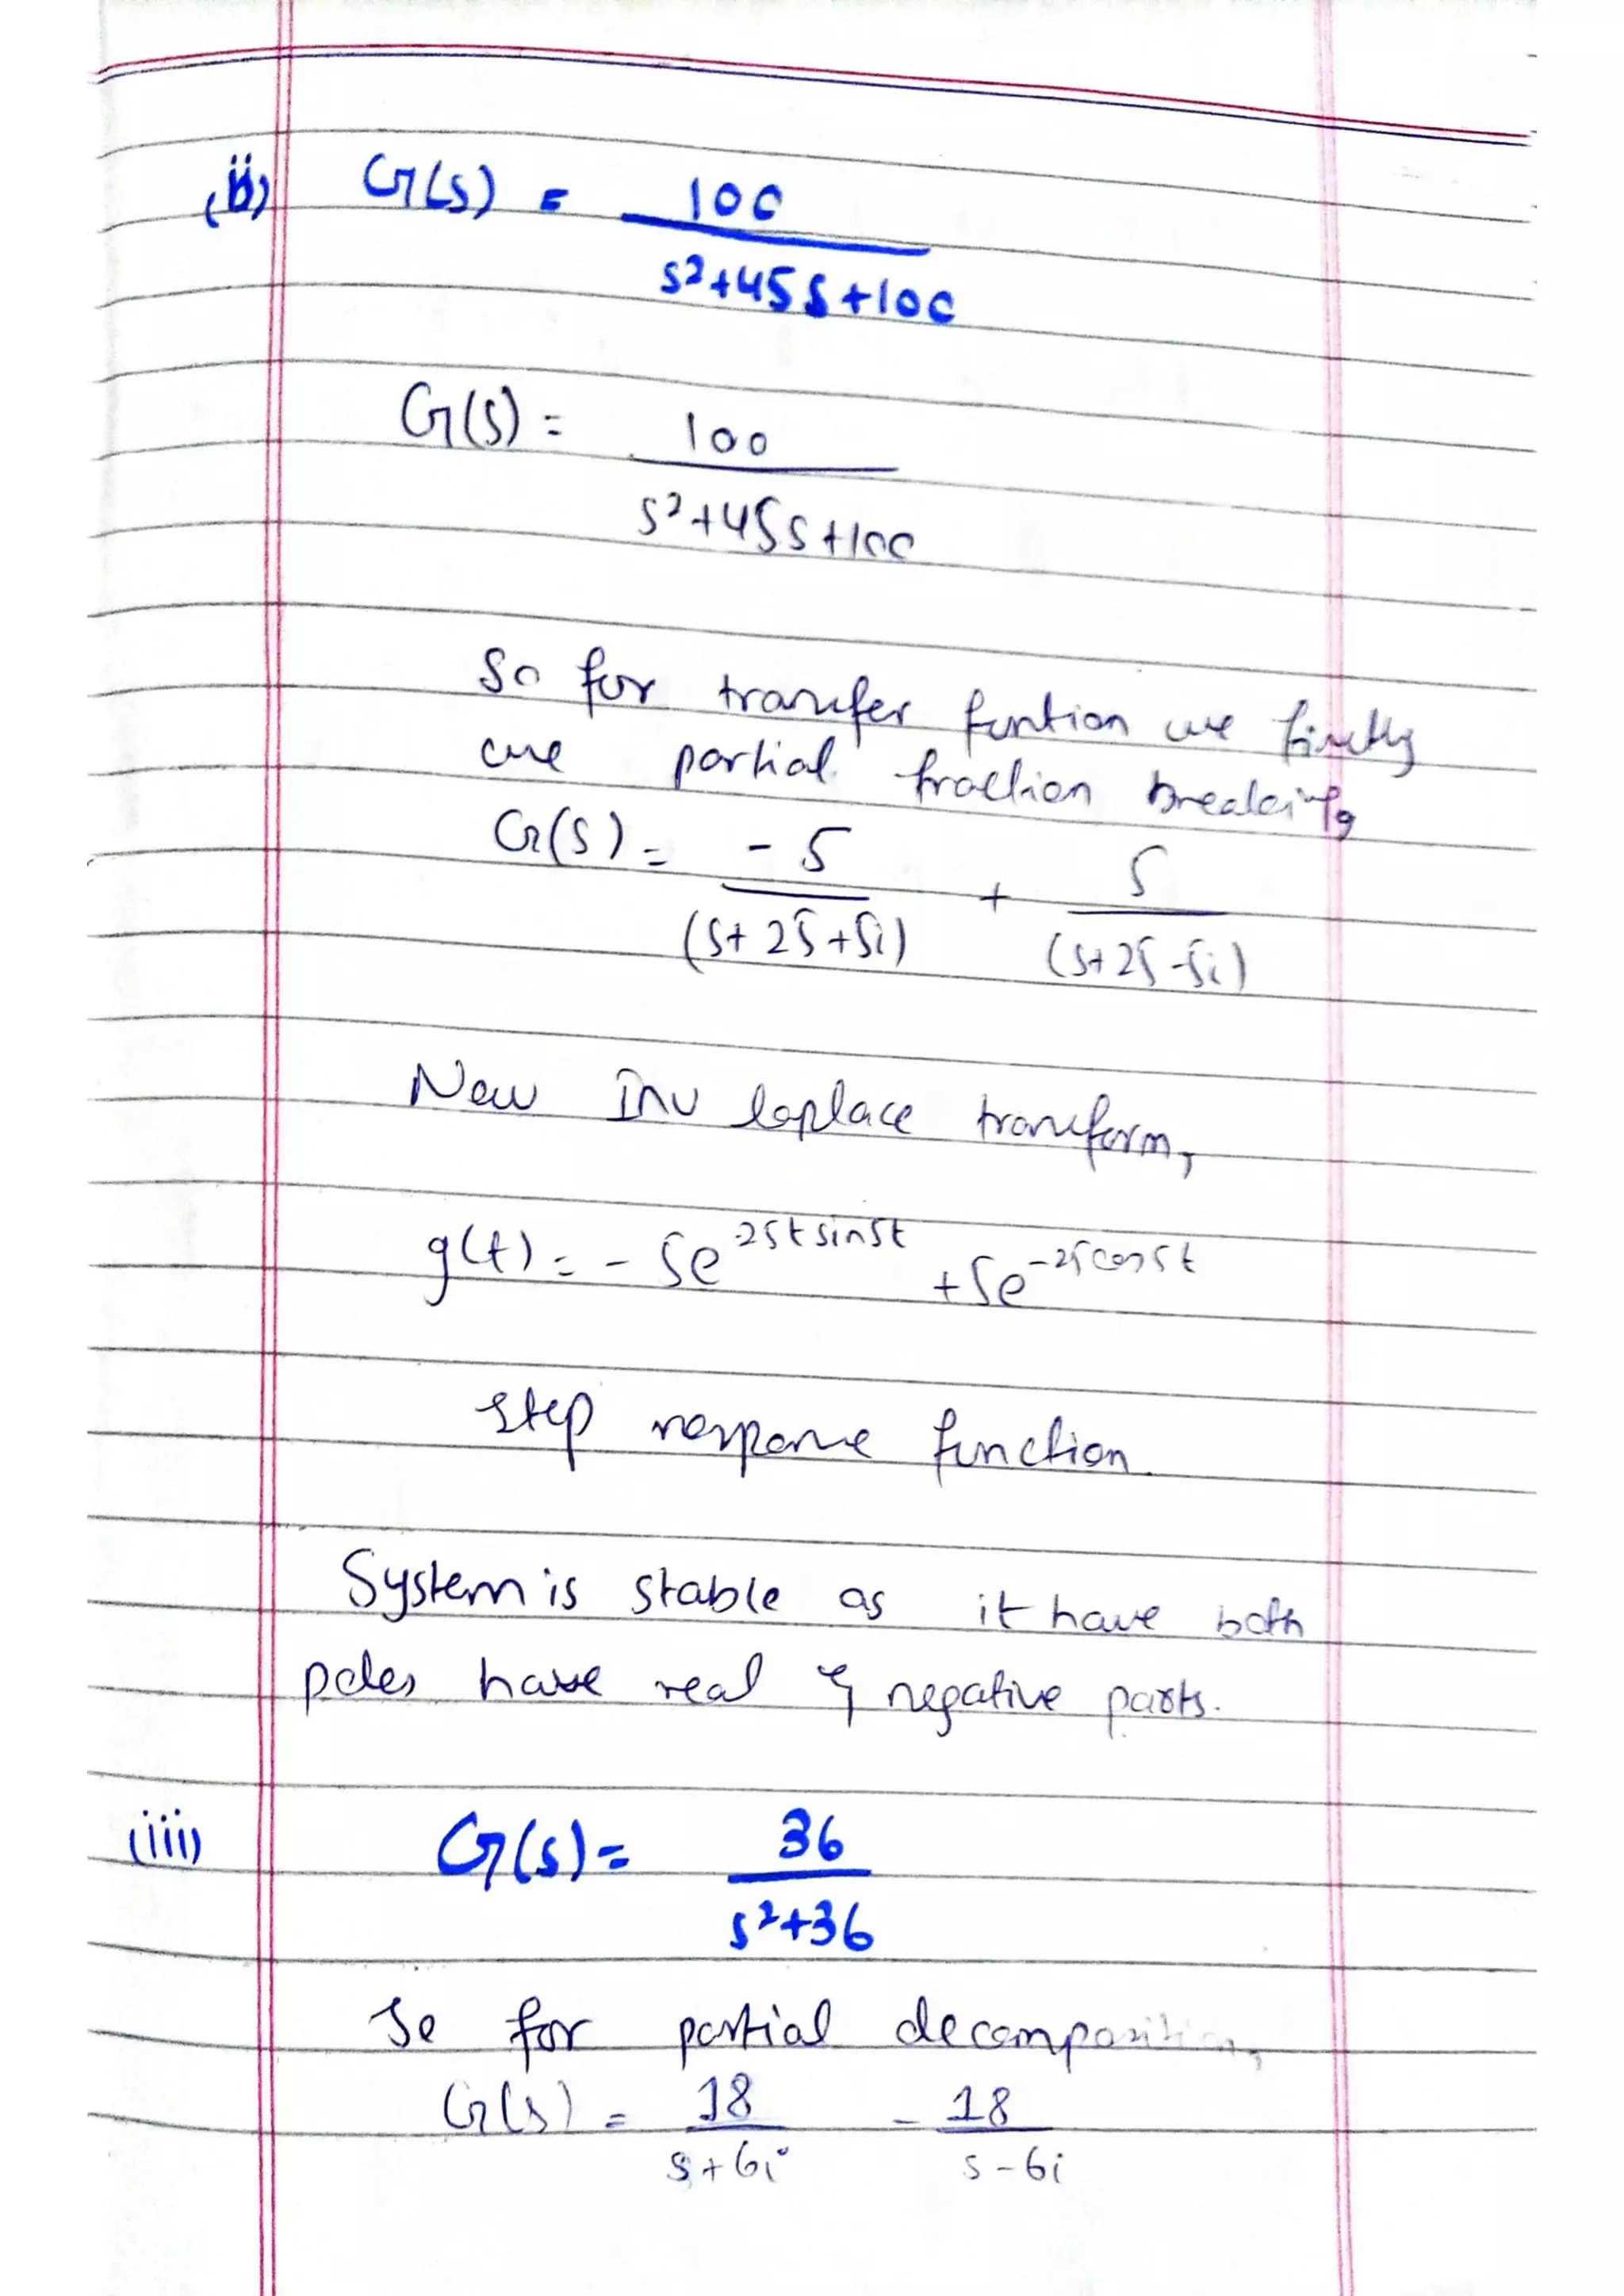 (ii) G(s) = 100
s²+45s+100
G(s) = 100
s²+45s+100
So for transfer funtion we firstly
use partial fraction breaking
G(s) = -5/(s+25+5i) + 5/(s+25-5i)
Now Inv laplace transform,
g(t) = -5e^25t sin5t + 5e^-25cos5t
Step response function.
System is stable as it have both
poles have real & negative parts.
(iii) G(s) = 36
s²+36
So for partial decomposition,
G(s) = 18/s+6i - 18/s-6i